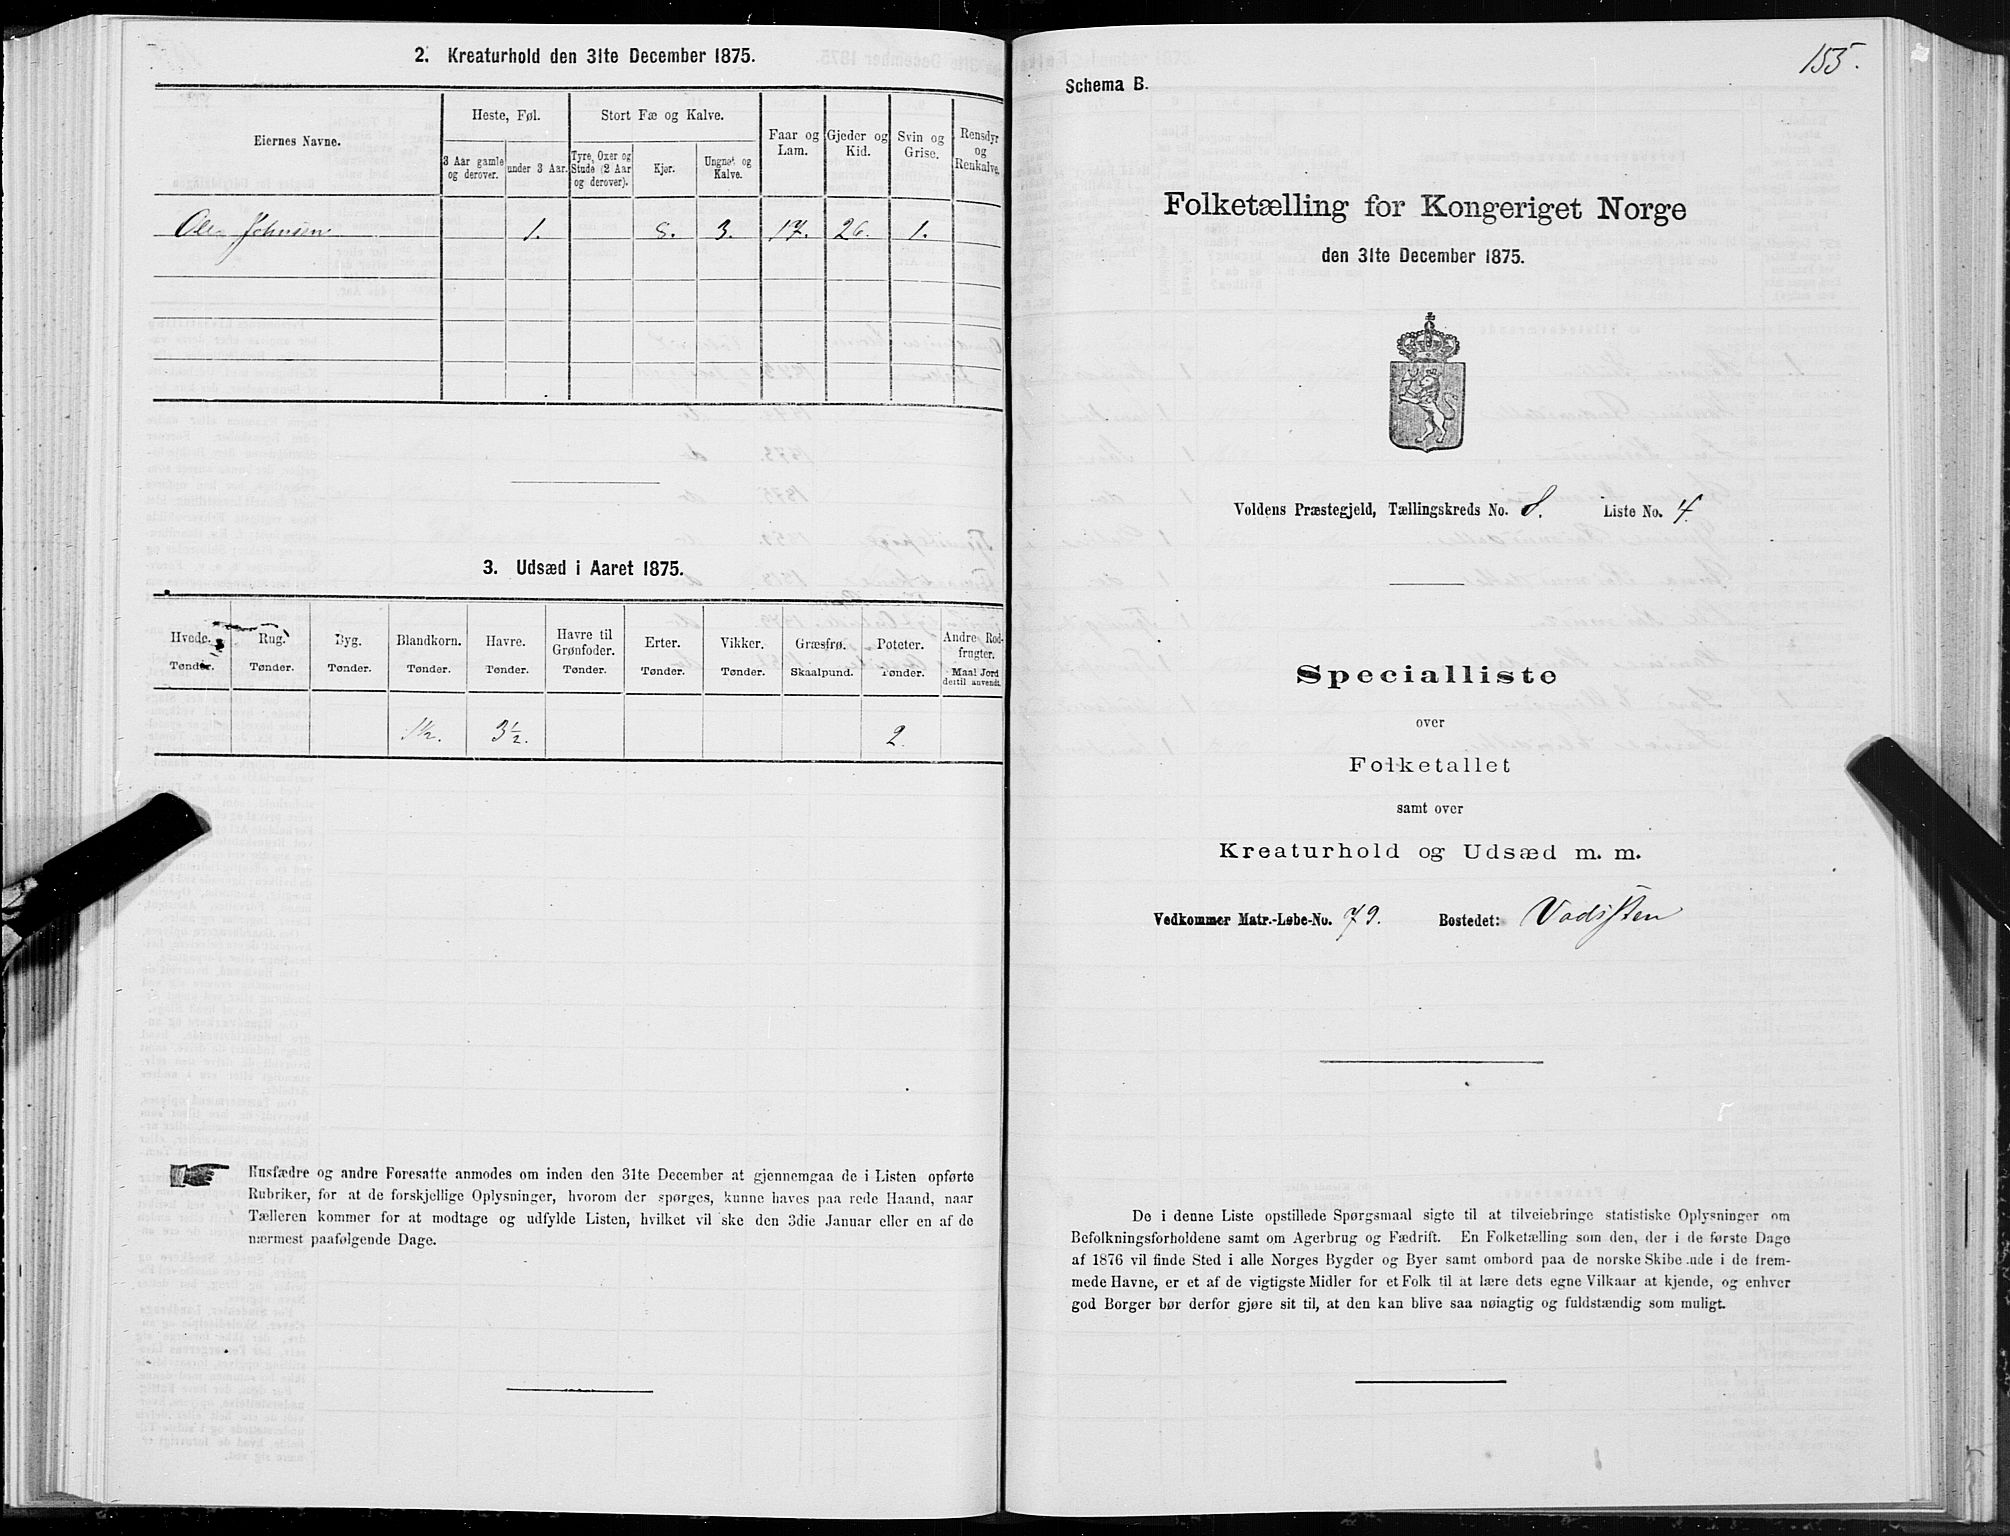 2. Kreaturhold den 31te December 1875.
Eiernes Navne.
Heste, Føl.
Stort Fæ og Kalve.
Faar og Lam.
Gjeder og Kid.
Svin og Grise.
Rensdyr og Renkalve.
3 Aar gamle og derover.
under 3 Aar.
Tyre, Oxer og Stude (2 Aar og derover).
Kjør.
Ungnøt og Kalve.
Ole Johnsen 1. 8. 3. 17. 26. 1.
3. Udsæd i Aaret 1875.
Hvede. Rug. Byg. Blandkorn. Havre. Havre til Grønfoder. Erter. Vikker. Græsfrø. Poteter. Andre Rodfrugter.
Tønder. Tønder. Tønder. Tønder. Tønder. Tønder. Tønder. Tønder. Skaalpund. Tønder. Maal Jord dertil anvendt.
1½. 3½. 2.
Husfædre og andre Foresatte anmodes om inden den 31te December at gjennemgaa de i Listen opførte
Rubriker, for at de forskjellige Oplysninger, hvorom der spørges, kunne haves paa rede Haand, naar
Tælleren kommer for at modtage og udfylde Listen, hvilket vil ske den 3die Januar eller en af de
nærmest paafølgende Dage.
155.
Schema B.
Folketælling for Kongeriget Norge
den 31te December 1875.
Voldens Præstegjeld, Tællingskreds No. 8. Liste No. 4.
Specialliste
over
Folketallet
samt over
Kreaturhold og Udsæd m. m.
Vedkommer Matr.-Løbe-No. 79. Bostedet: Vadsten
De i denne Liste opstillede Spørgsmaal sigte til at tilveiebringe statistiske Oplysninger om
Befolkningsforholdene samt om Agerbrug og Fædrift. En Folketælling som den, der i de første Dage
af 1876 vil finde Sted i alle Norges Bygder og Byer samt ombord paa de norske Skibe ude i de frem-
mede Havne, er et af de vigtigste Midler for et Folk til at lære dets egne Vilkaar at kjende, og enhver
god Borger bør derfor gjøre sit til, at den kan blive saa nøiagtig og fuldstændig som muligt.